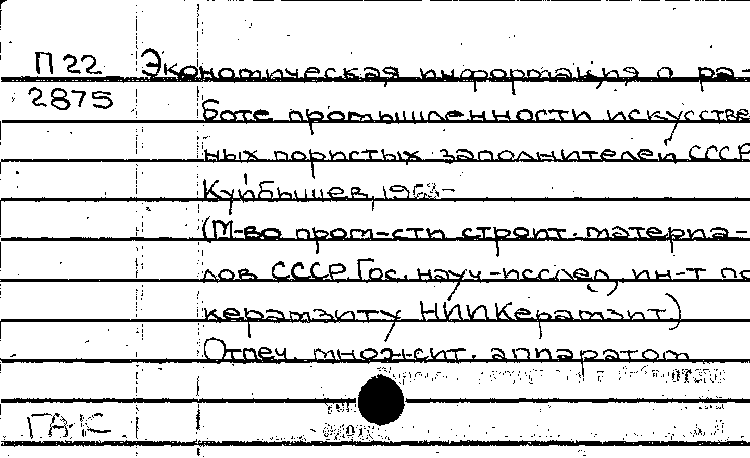 П 22 Экономическая информация о ра-
2875 боте промышленности искусстве
ных пористых заполнителей СССР
Куйбышев, 1963-
(М-во пром-сти строит. материа-
лов СССР. Гос. науч.-исслед. ин-т по
керамзиту НИИКерамзит)
Отпеч. множит. аппаратом
ГАК.